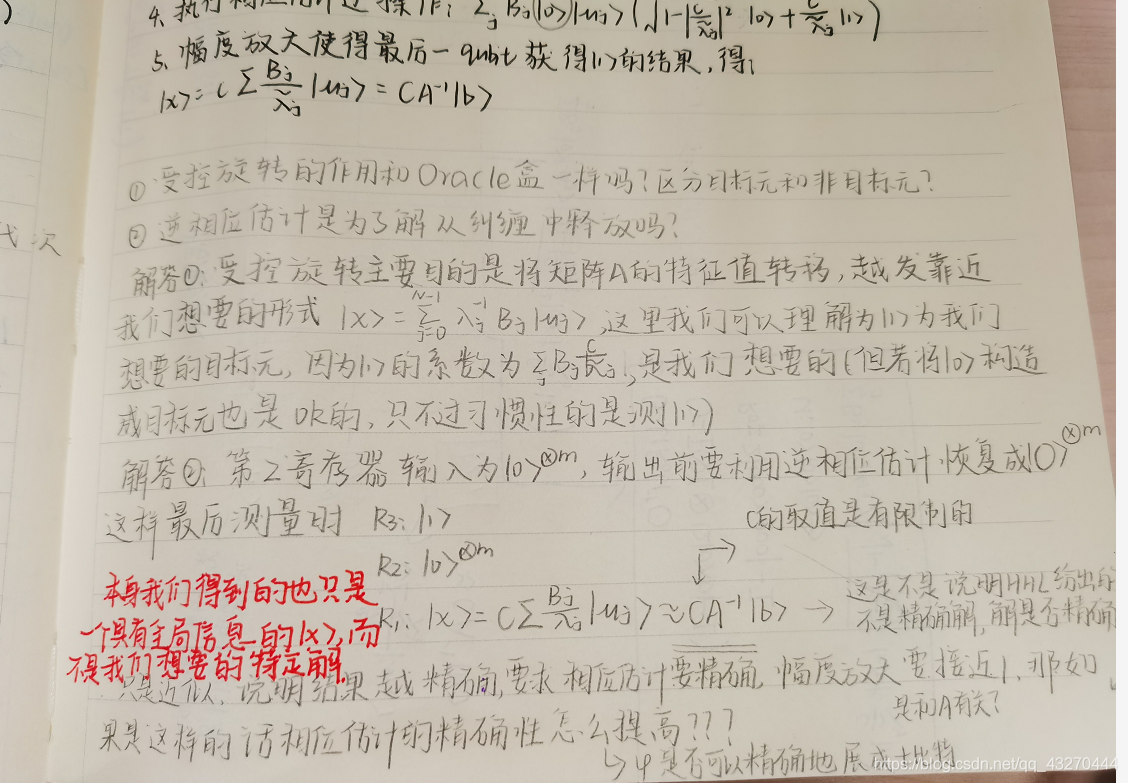 4. 执行相位估计逆操作: Σ_j β_j|0>|μ_j>(√(1-|C/λ̃_j|²) |0> + C/λ̃_j |1>)
5. 幅度放大使得最后一qubit获得|1>的结果, 得:
|x> = C Σ β_j/λ̃_j |μ_j> = CA⁻¹|b>
① 受控旋转的作用和Oracle盒一样吗? 区分目标元和非目标元?
② 逆相位估计是为了解从纠缠中释放吗?
代次
解答①: 受控旋转主要目的是将矩阵A的特征值转移, 越发靠近
我们想要的形式 |x> = Σ_{j=0}^{N-1} λ_j^{-1} β_j|μ_j>, 这里我们可以理解为|1>为我们
想要的目标元, 因为|1>的系数为 Σ_j β_j C/λ̃_j, 是我们想要的(但若将|0>构造
成目标元也是OK的, 只不过习惯性的是测|1>)
解答②: 第2寄存器输入为|0>^⊗m, 输出前要利用逆相位估计恢复成|0>^⊗m
这样最后测量时 R3: |1>
C的取值是有限制的
R2: |0>^⊗m
R1: |x> = C Σ β_j/λ_j |μ_j> ≈ CA⁻¹|b> →
这是不是说明HHL给出的
不是精确解, 解是否精确
是和A有关?
本身我们得到的也只是
一个具有全局信息的|x>, 而
不是我们想要的特定解.
只是近似, 说明结果越精确, 要求相位估计要精确, 幅度放大要接近1, 那如
果是这样的话相位估计的精确性怎么提高???
↳ φ是否可以精确地展成t比特
https://blog.csdn.net/qq_43270444